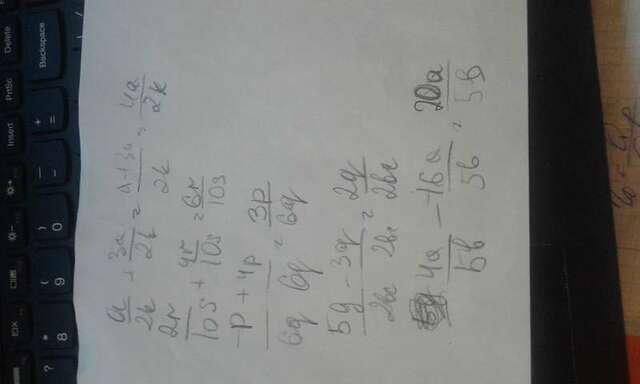 Insert PrtSc Delete
? * 8 ( 9 ) 0 — - + = Backspace
a/2k + 3a/2k = a+3a/2k = 4a/2k
2r/10s + 4r/10s = 6r/10s
-p/6q + 4p/6q = 3p/6q
5q/2bc - 3q/2bc = 2q/2bc
4a/5b - -16a/5b = 20a/5b